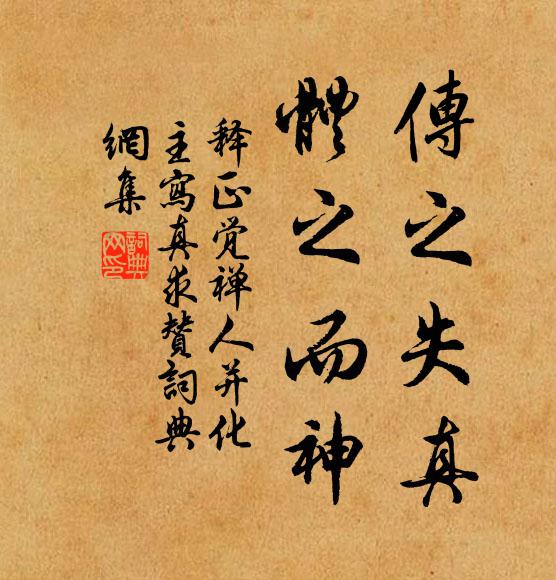 傳之失真
體之而神
释正觉禅人并化
主寫真求賛詞典
網集
詞典網印